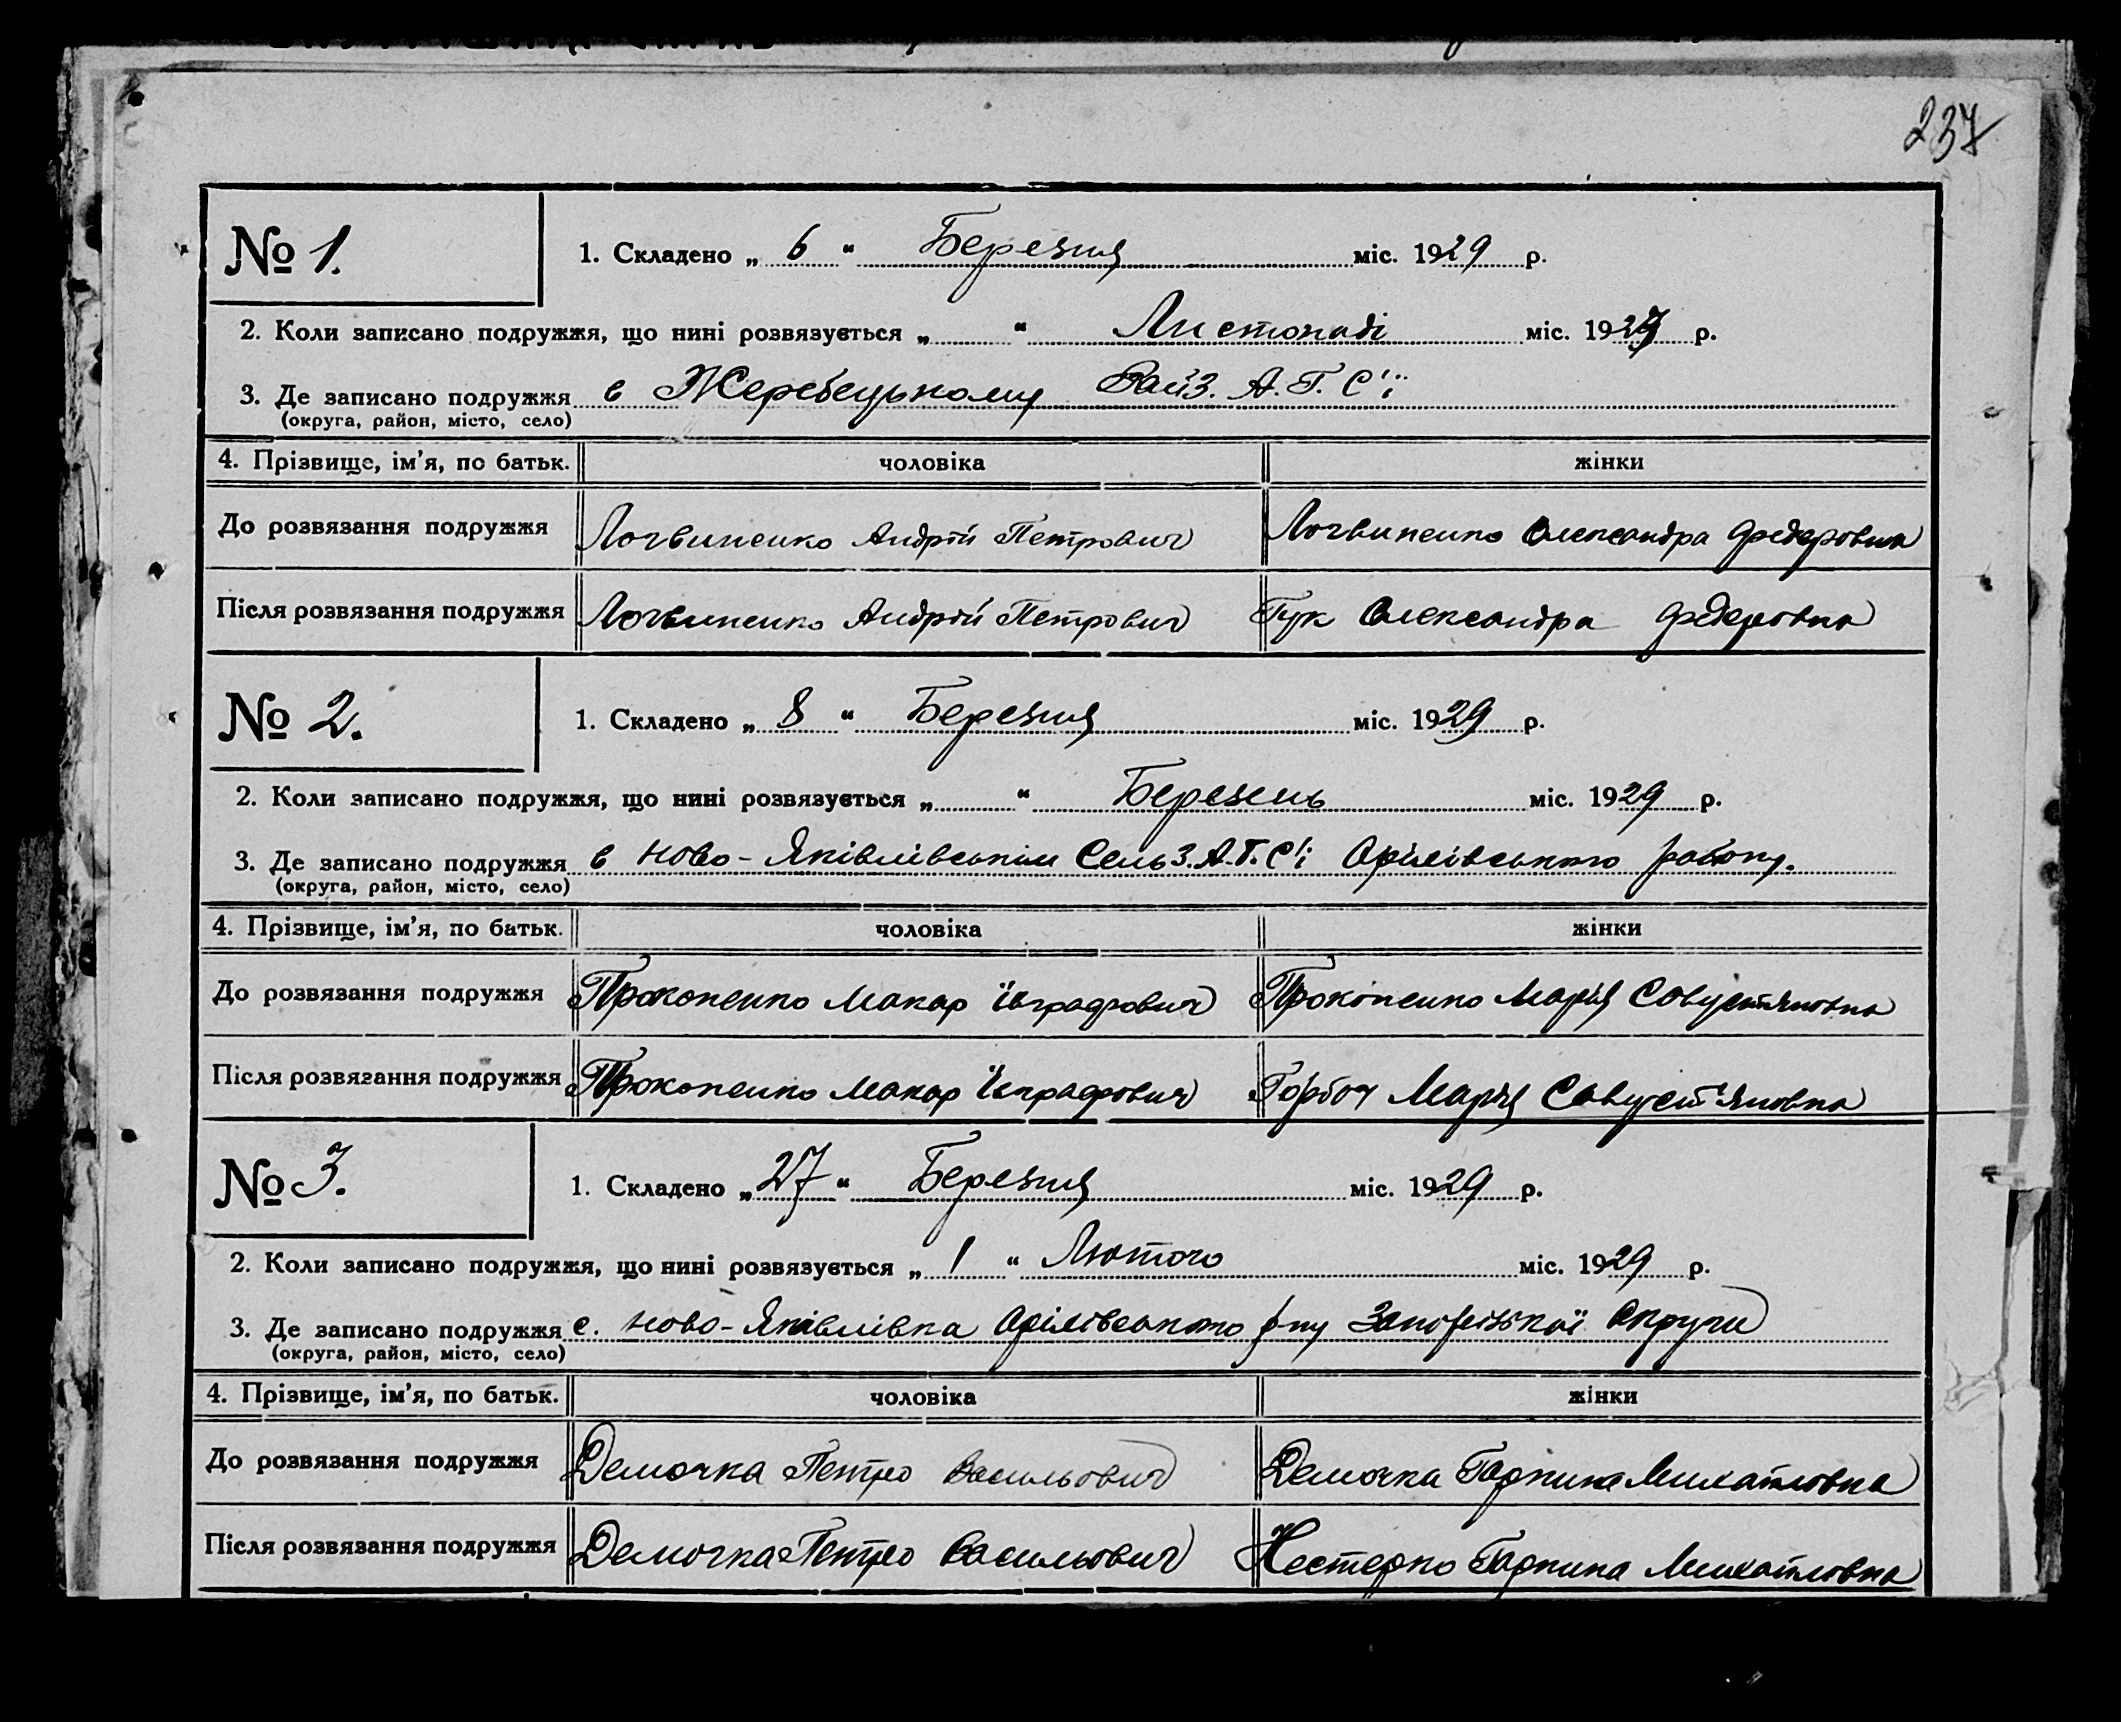 237
№ 1.
1. Складено „ 6 “ Березня міс. 1929 р.
2. Коли записано подружжя, що нині розвязується „ “ Листопаді міс. 1927 р.
3. Де записано подружжя в Жеребецькому Рай З.А.Г.С'ї
(округа, район, місто, село)
4. Прізвище, ім’я, по батьк. чоловіка жінки
До розвязання подружжя Логвиненко Андрій Петрович Логвиненко Олександра Федеровна
Після розвязання подружжя Логвиненко Андрій Петрович Гук Олександра Федеровна
№ 2.
1. Складено „ 8 “ Березня міс. 1929 р.
2. Коли записано подружжя, що нині розвязується „ “ Березень міс. 1929 р.
3. Де записано подружжя в Ново-Яківлівськім Сель З.А.Г.С'ї Оріхівського району.
(округа, район, місто, село)
4. Прізвище, ім’я, по батьк. чоловіка жінки
До розвязання подружжя Прокопенко Макар Євграфович Прокопенко Марія
Після розвязання подружжя Прокопенко Макар Горбач Марія
№ 3.
1. Складено „ 27 “ Березня міс. 1929 р.
2. Коли записано подружжя, що нині розвязується „ 1 “ Лютого міс. 1929 р.
3. Де записано подружжя с. Ново-Яківлівка Оріхівського р-ну Запоріжської Округи
(округа, район, місто, село)
4. Прізвище, ім’я, по батьк. чоловіка жінки
До розвязання подружжя Демочка Петро Васильович Демочка Гарпина Михайловна
Після розвязання подружжя Демочка Петро Васильович Нестерко Гарпина Михайловна